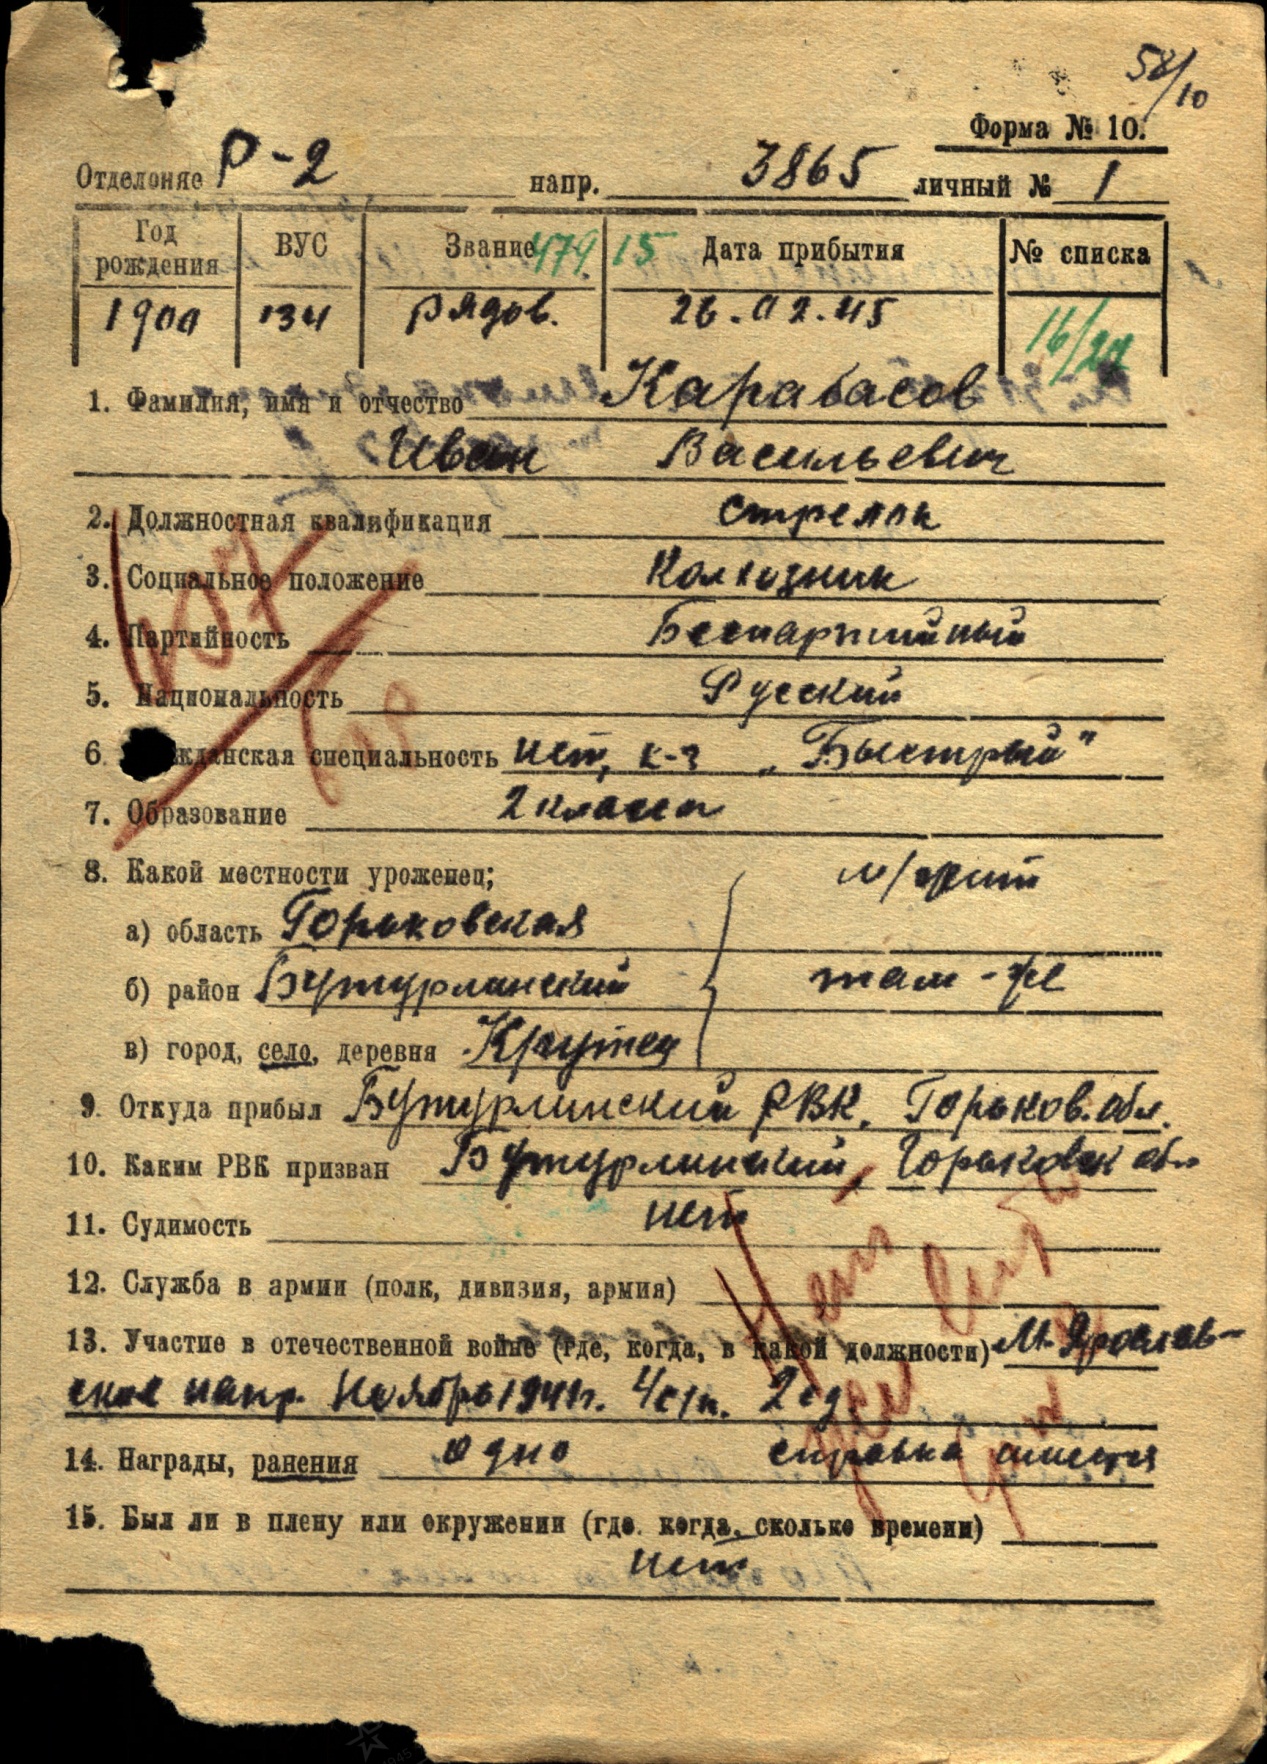 58/10
Форма № 10.
Отделение Р-2 напр. 3865 личный № 1
Год рождения ВУС Звание 479 15 Дата прибытия № списка
1900 134 рядов. 26.02.45 16/
1. Фамилия, имя и отчество Карабасов
Иван Васильевич
2. Должностная квалификация стрелок
3. Социальное положение Колхозник
4. Партийность Беспартийный
5. Национальность Русский
6 жданская специальность нет, к-з „Быстрый"
7. Образование 2 класса
8. Какой местности уроженец;
м/жит
а) область Горьковская
б) район Бутурлинский там-же
в) город, село, деревня Крутец
9. Откуда прибыл Бутурлинский РВК, Горьков. обл.
10. Каким РВК призван Бутурлинский, Горьковск обл
11. Судимость нет
12. Служба в армии (полк, дивизия, армия)
13. Участие в отечественной войне (где, когда, в какой должности) М. Ярослав-
ское напр. Ноябрь 1941г. 4 с/п. 2 сд.
14. Награды, ранения одно справка имеется
15. Был ли в плену или окружении (где. когда, сколько времени)
нет